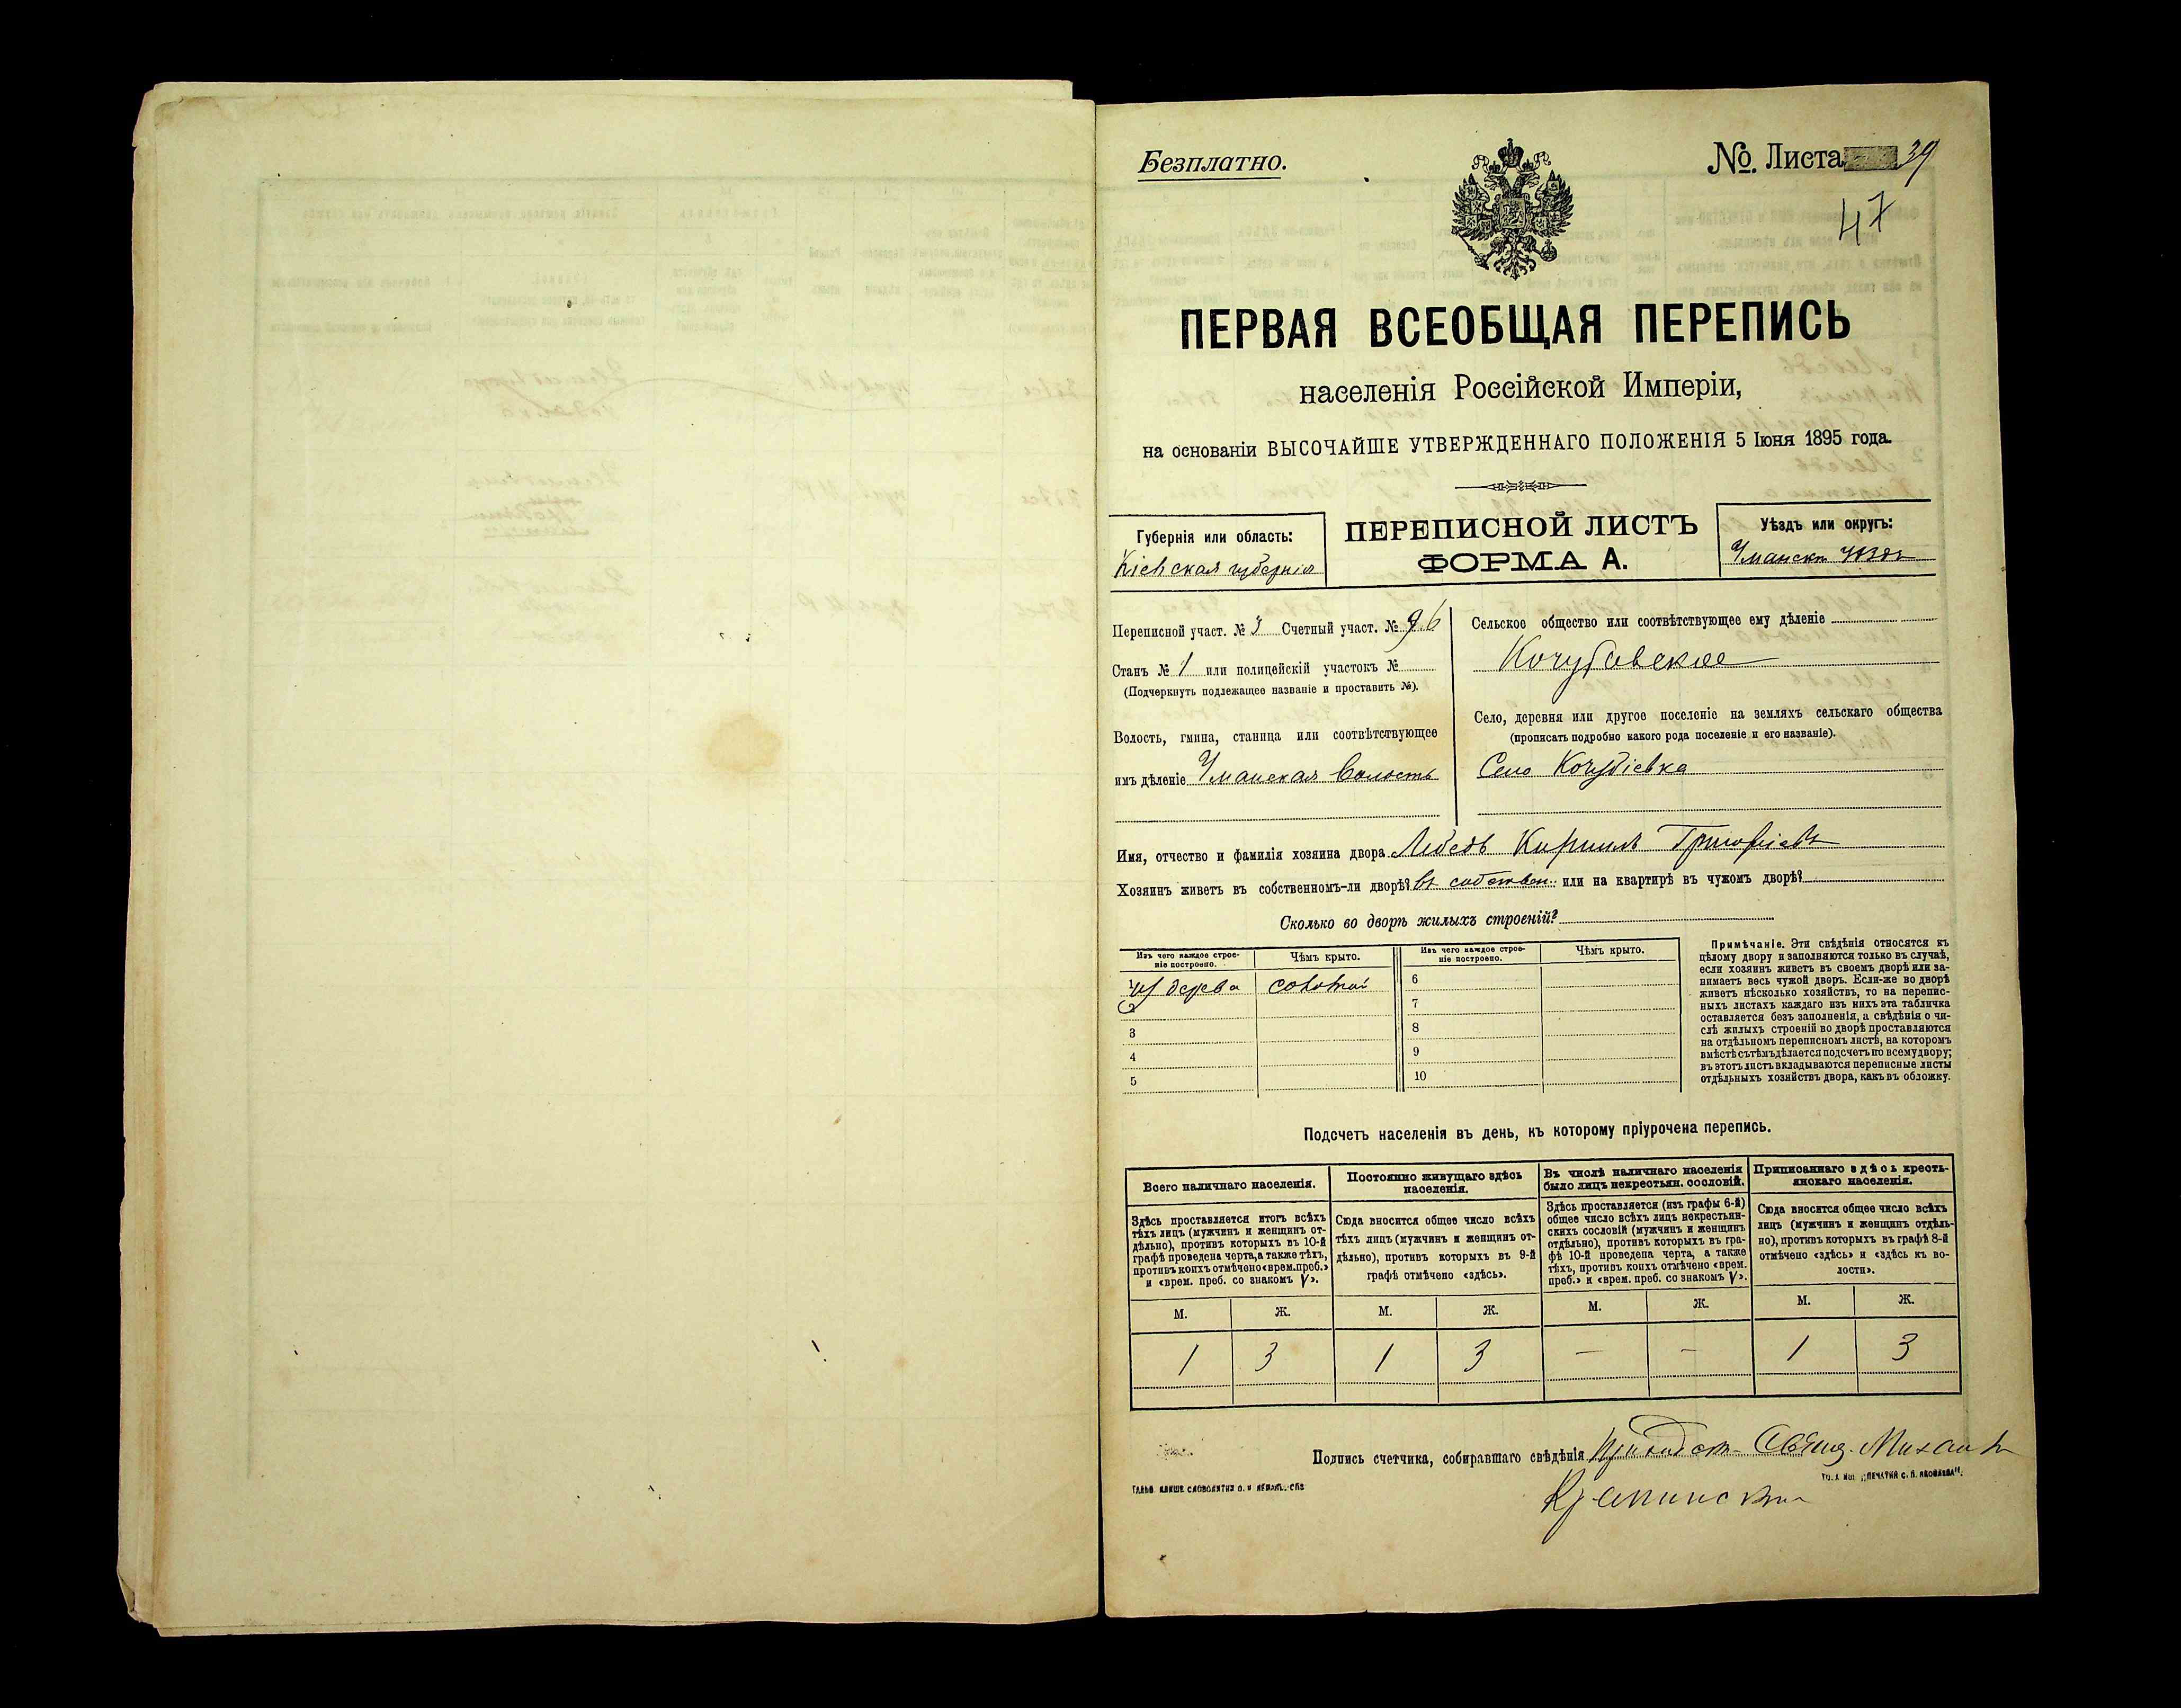 Безплатно.
№. Листа 39
47
ПЕРВАЯ ВСЕОБЩАЯ ПЕРЕПИСЬ
населенія Россійской Имперіи,
на основаніи ВЫСОЧАЙШЕ УТВЕРЖДЕННАГО ПОЛОЖЕНІЯ 5 Іюня 1895 года.
Губернія или область:
Кіевская губернія
ПЕРЕПИСНОЙ ЛИСТЪ
ФОРМА А.
Уѣздъ или округъ:
Уманск уѣздъ
Переписной участ. № 3 Счетный участ. № 96
Станъ № 1 или полицейскій участокъ №
(Подчеркнуть подлежащее названіе и проставить №).
Волость, гмина, станица или соотвѣтствующее
имъ дѣленіе Уманская волость
Сельское общество или соотвѣтствующее ему дѣленіе
Кочубіевское
Село, деревня или другое поселеніе на земляхъ сельскаго общества
(прописать подробно какого рода поселеніе и его названіе).
Село Кочубіевка
Имя, отчество и фамилія хозяина двора Лебедь Кириллъ Григоріевъ
Хозяинъ живетъ въ собственномъ-ли дворѣ? въ собствен. или на квартирѣ въ чужомъ дворѣ?
Сколько во дворѣ жилыхъ строеній?
Изъ чего каждое строе-
ніе построено.
Чѣмъ крыто.
Изъ чего каждое строе-
ніе построено.
Чѣмъ крыто.
1 изъ дерева соломой
2
3
4
5
6
7
8
9
10
Примѣчаніе. Эти свѣдѣнія относятся къ
цѣлому двору и заполняются только въ случаѣ,
если хозяинъ живетъ въ своемъ дворѣ или за-
нимаетъ весь чужой дворъ. Если-же во дворѣ
живетъ нѣсколько хозяйствъ, то на перепис-
ныхъ листахъ каждаго изъ нихъ эта табличка
оставляется безъ заполненія, а свѣдѣнія о чи-
слѣ жилыхъ строеній во дворѣ проставляются
на отдѣльномъ переписномъ листѣ, на которомъ
вмѣстѣ съ тѣмъ дѣлается подсчетъ по всему двору;
въ этотъ листъ вкладываются переписные листы
отдѣльныхъ хозяйствъ двора, какъ въ обложку.
Подсчетъ населенія въ день, къ которому пріурочена перепись.
Всего наличнаго населенія.
Здѣсь проставляется итогъ всѣхъ
тѣхъ лицъ (мужчинъ и женщинъ от-
дѣльно), противъ которыхъ въ 10-й
графѣ проведена черта, а также тѣхъ,
противъ коихъ отмѣчено «врем. преб.»
и «врем. преб. со знакомъ V».
Постоянно живущаго здѣсь
населенія.
Сюда вносится общее число всѣхъ
тѣхъ лицъ (мужчинъ и женщинъ от-
дѣльно), противъ которыхъ въ 9-й
графѣ отмѣчено «здѣсь».
Въ числѣ наличнаго населенія
было лицъ некрестьян. сословій.
Здѣсь проставляется (изъ графы 6-й)
общее число всѣхъ лицъ некрестьян-
скихъ сословій (мужчинъ и женщинъ
отдѣльно), противъ которыхъ въ гра-
фѣ 10-й проведена черта, а также
тѣхъ, противъ коихъ отмѣчено «врем.
преб.» и «врем. преб. со знакомъ V».
Приписаннаго здѣсь кресть-
янскаго населенія.
Сюда вносится общее число всѣхъ
лицъ (мужчинъ и женщинъ отдѣль-
но), противъ которыхъ въ графѣ 8-й
отмѣчено «здѣсь» и «здѣсь къ во-
лости».
М. Ж. М. Ж. М. Ж. М. Ж.
1 3 1 3 — — 1 3
Подпись счетчика, собиравшаго свѣдѣнія Священ. Михаилъ